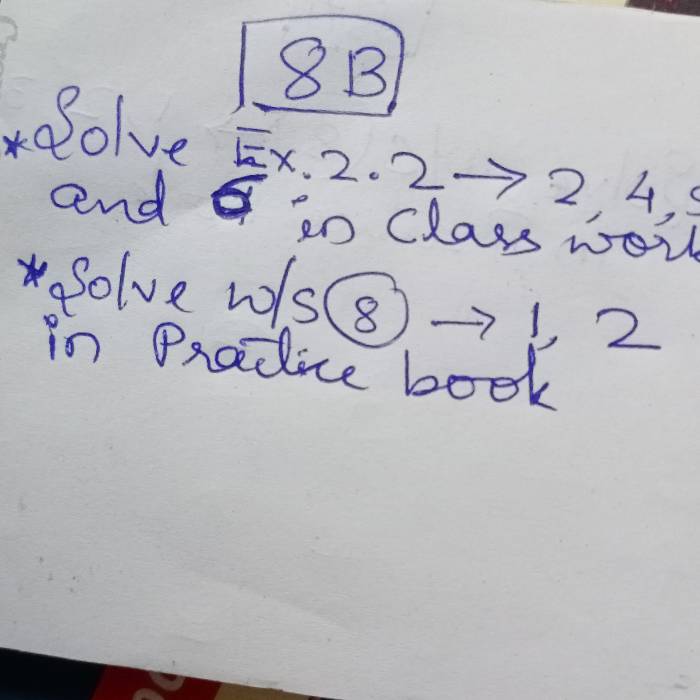 8B
*Solve Ex.2.2 → 2, 4, 5
and 6 in Class work
*Solve w/s 8 → 1, 2
in Practice book